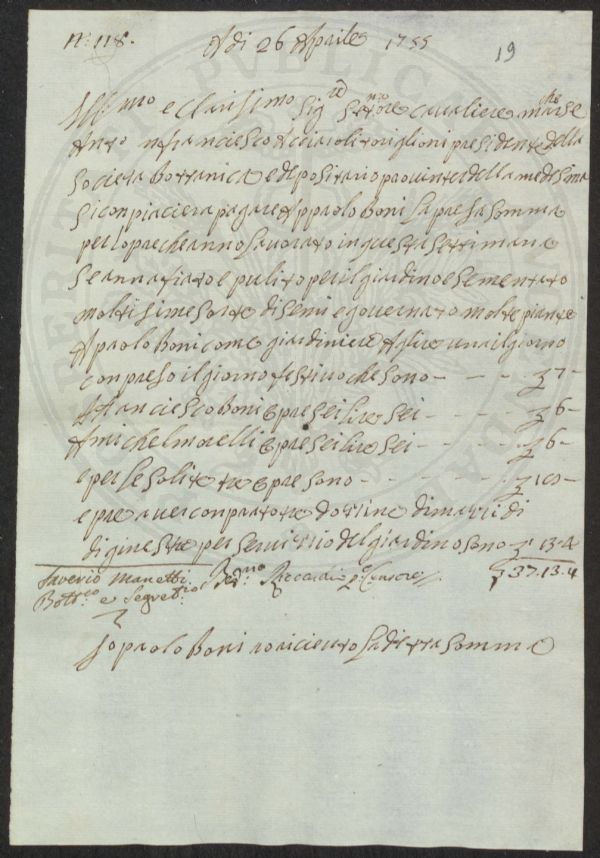 N.° 118. Adi 26 Aprile 1755 19
Ill:mo e Clarisimo Sig:re Senatore Cavaliere marse
Anto nfranciesco Acciaioli toriglioni presidente della
Societa bottanica e depositario provinter della medesima
Si conpiaciera pagare Appaolo Boni la presa Somma
per lopre che anno lavorato in questa settimana
Se annafiato e pulito per il giardino e sementato
moltisime sorte di Semi e governato molte piante
A paolo Boni come giardiniere A lire una il giorno
conpreso il giorno festivo che sono - - - - 7 -
A franciesco boni opre sei lire sei - - - - 6 -
A michel morelli opre sei lire sei - - - - 6 -
e per le solite tre opre sono - - - - - - -
e pre aver conprato tre dozzine di mazzi di
di ginestre per servizio del giardino sono 13.4
Saverio Manetti Bern.no Riccardi p.° Censore 37.13.4
Bott.co e Segret.rio
Io paolo Boni o riceuto la detta somma